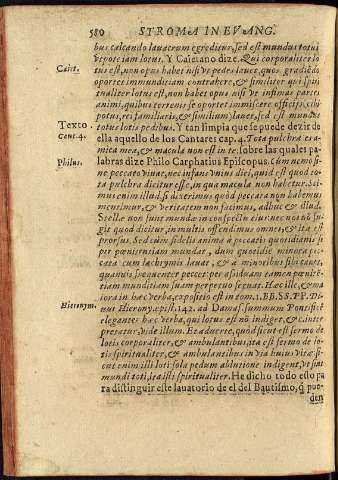 580 STROMA IN EVANG.
bus calcando lauacrum egreditur, sed est mundus totus
vt pote iam lotus. Y Caietano dize. Qui corporaliter lo
Caiet. tus est, non opus habet nisi vt pedes lauet, quos gradiēdo
oportet immunditiam contrahere, & similiter qui spiri
tualiter lotus est, non habet opus nisi vt infimas partes
animi, quibus terrenis se oportet immiscere officijs, cibi,
potus, rei familiaris, & similium, lauet, sed est mundus
Texto totus lotis pedibus. Y tan limpia que se puede dezir de
Cant. 4. ella aquello de los Cantares cap. 4. Tota pulchra es a-
mica mea, & macula non est in te: sobre las quales pa-
Philus. labras dize Philo Carphatius Episcopus. Cum nemo si-
ne peccato viuat, nec infans vnius diei, quid est quod to-
ta pulchra dicitur esse, in qua macula non habetur. Sci-
mus enim illud, si dixerimus quod peccata non habemus
mentimur, & veritatem non facimus, adhuc & illud.
Stellæ non sunt mundæ in conspectu eius: nec nouū fu-
git quod dicitur, in multis offendimus omnes, & ita est
prorsus, Sed cum fidelis anima a peccatis quotidianis si
per pœnitentiam mundat, dum quotidie minora pec-
cata cum lachrymis lauat, & a maioribus sibi cauet,
quamuis frequenter peccet: per assiduam tamen pœnitē-
tiam munditiam suam perpetuo seruat. Hæc ille, & ma
iora in hæc verba, expositio est in tom. 1. BB. SS. PP. Di-
Hieronym. uus Hierony. epist. 142. ad Damas. summum Pontifi. &
elegantes hæc verba, qui lotus est nō indiget, & c. inter
pretatur, vide illum. Et aduerte, quod sicut est sermo de
lotis corporaliter, & ambulantibus, ita est sermo de lo-
tis spiritualiter, & ambulantibus in via huius vitæ si-
cut enim illi loti sola pedum ablutione indigent, vt sint
mundi toti, ita isti spiritualiter. He dicho todo esto pa
ra distinguir este lauatorio de el del Bautismo, q̃ pue-
den